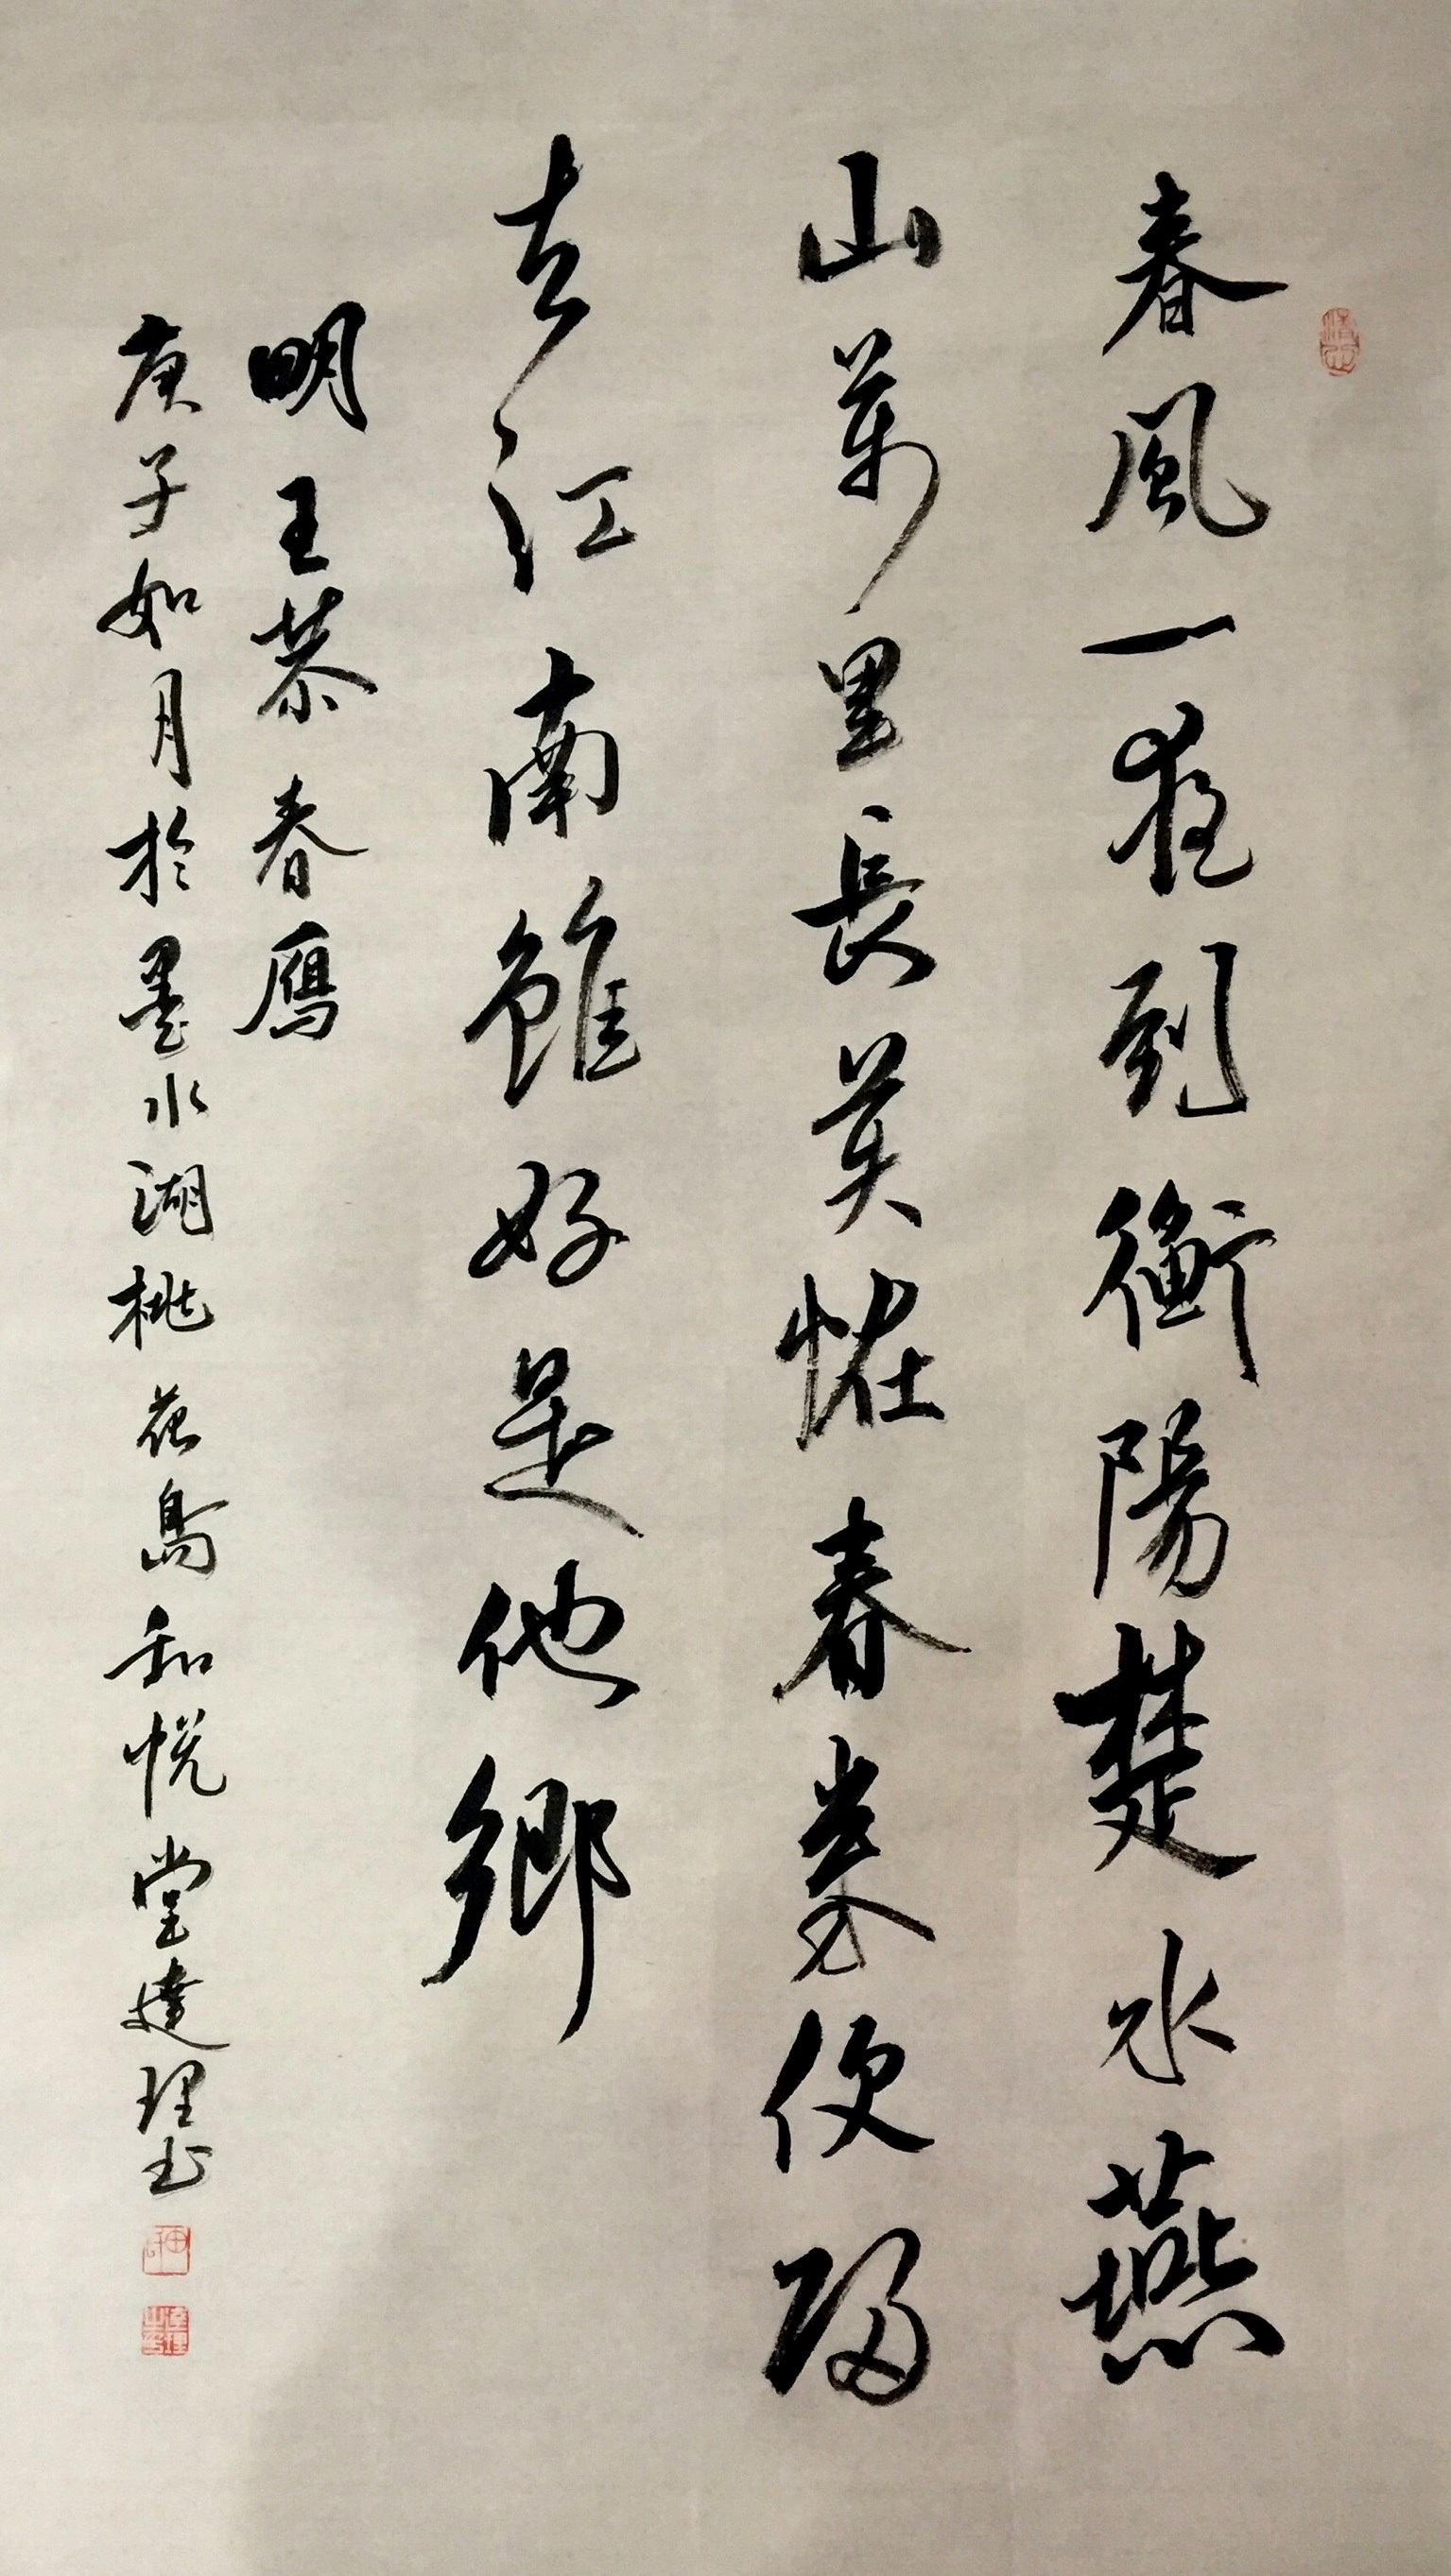 春風一夜到衡陽楚水燕
山萬里長莫恠春來便歸
去江南雖好是他鄉
明王恭春鴈
庚子如月於墨水湖桃花島和悅堂達理書